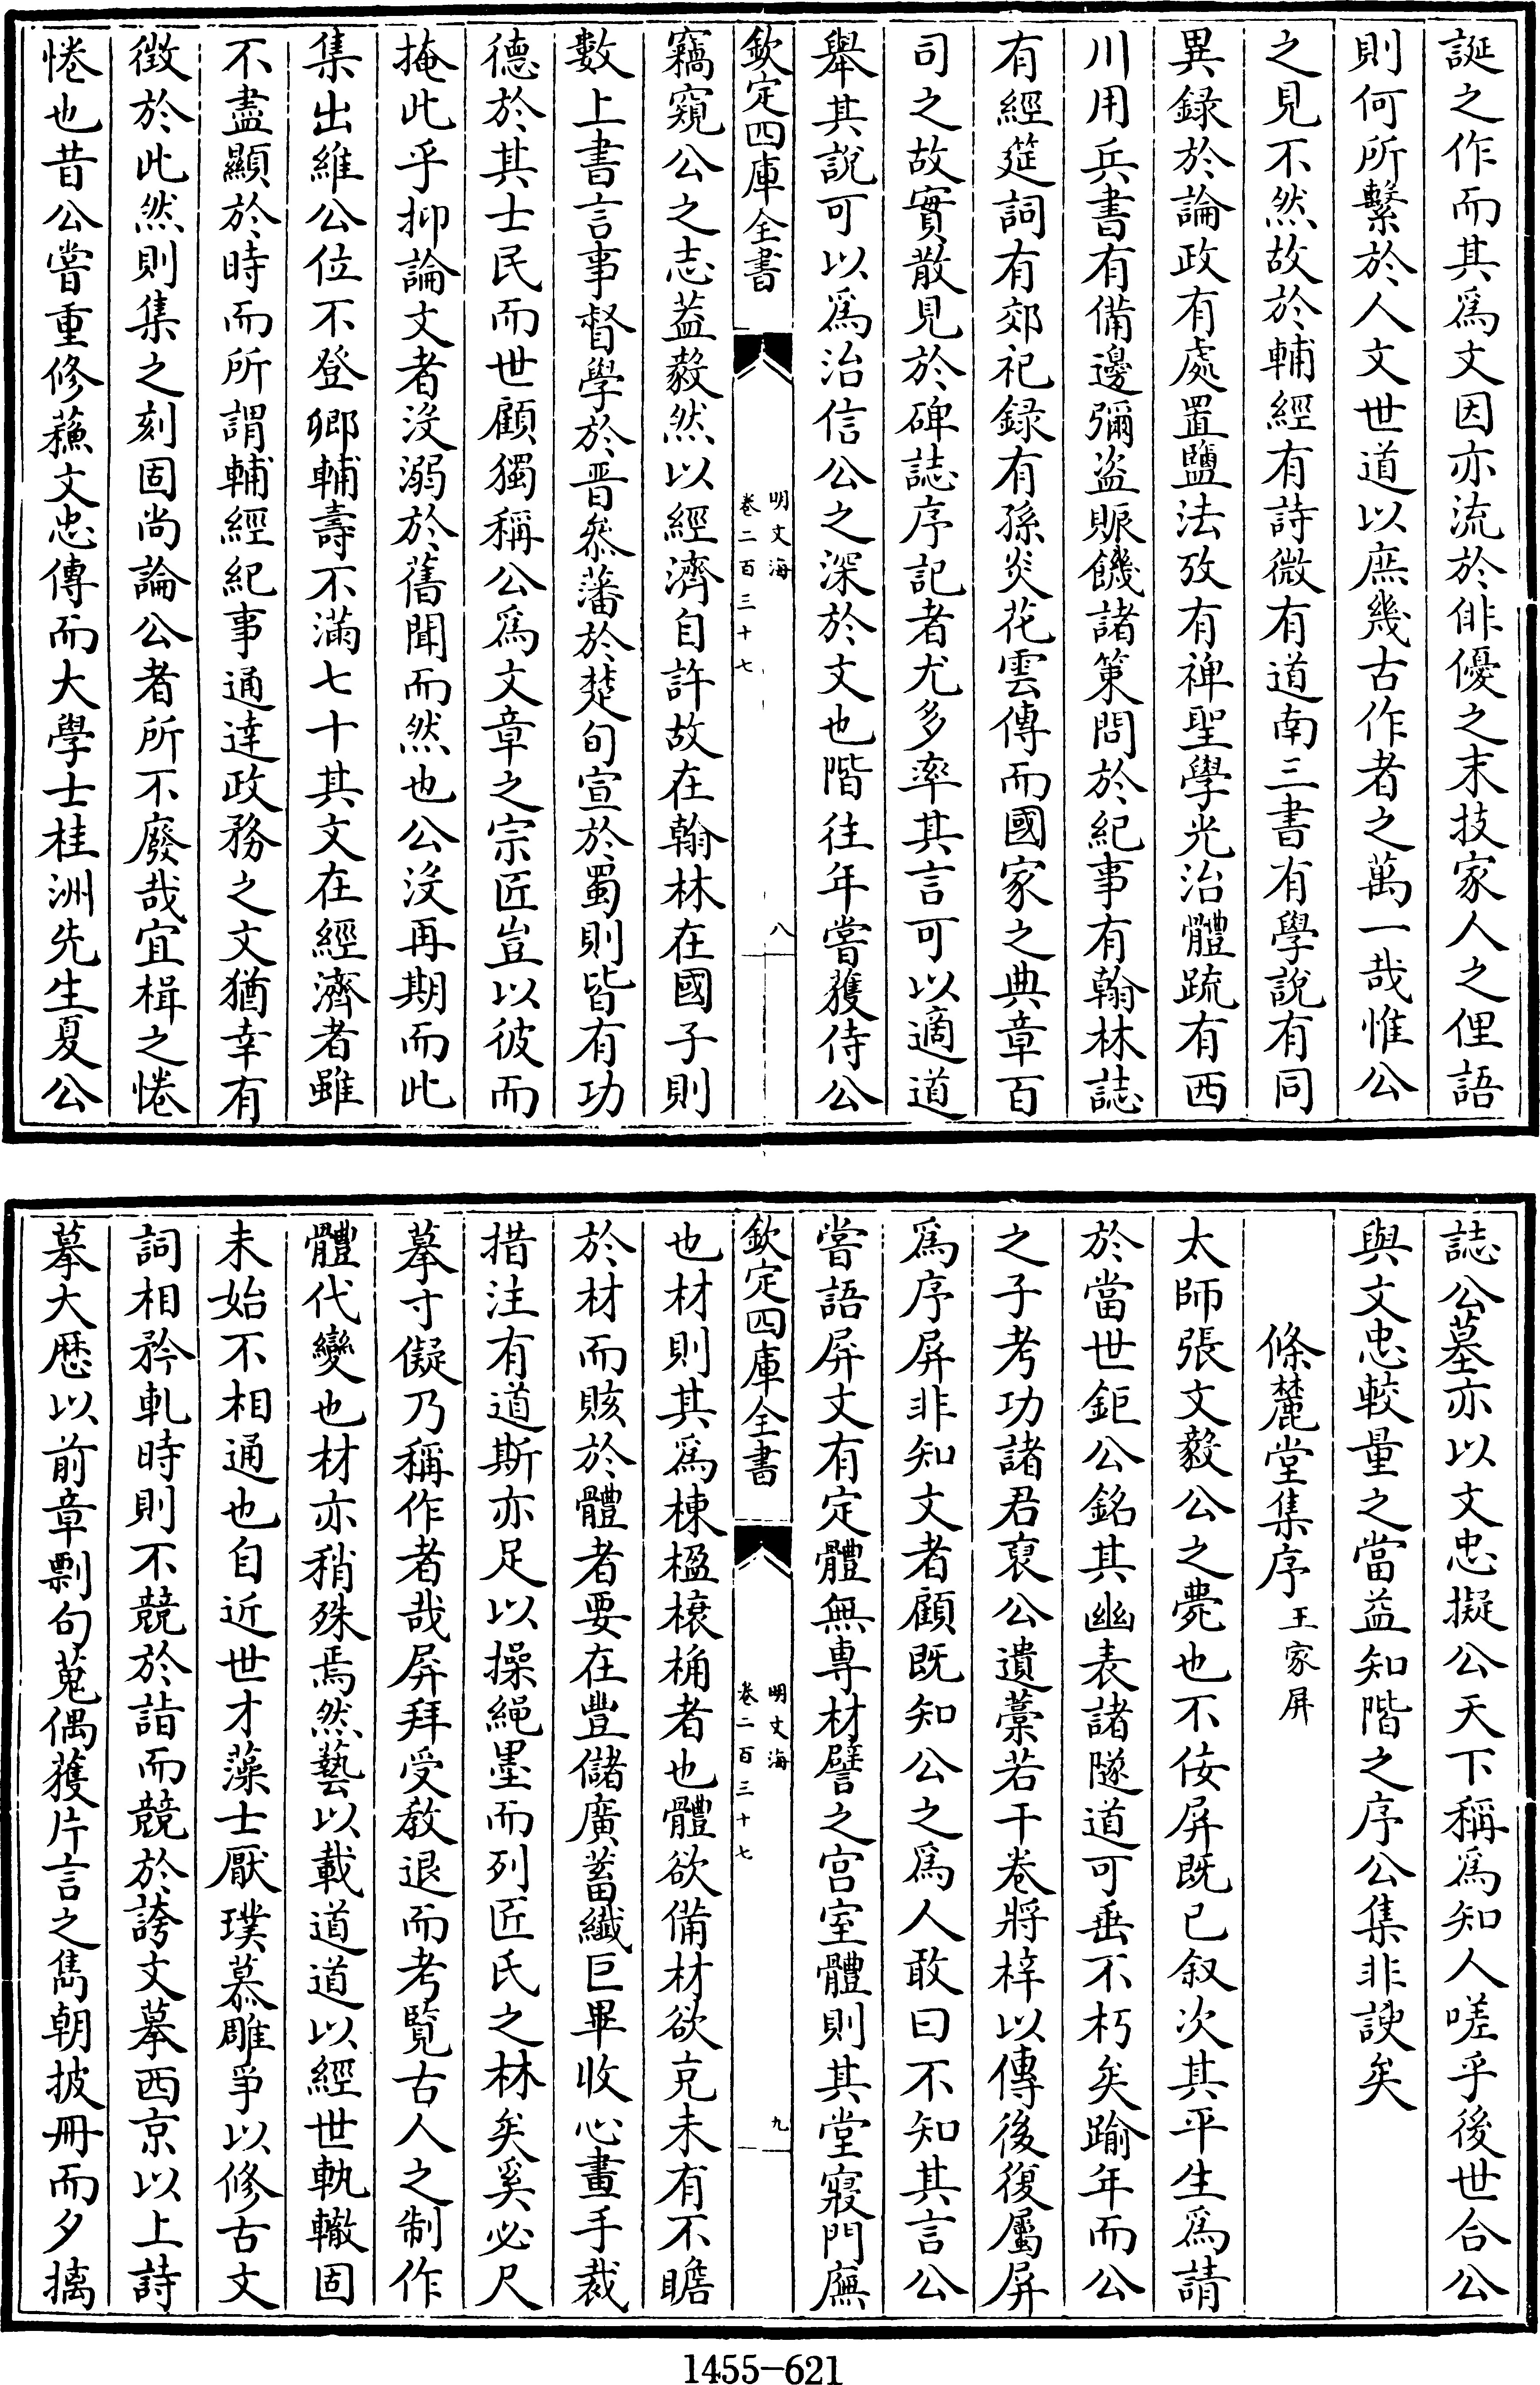 誕之作而其為文因亦流於俳優之末技家人之俚語
則何所繫於人文世道以庶幾古作者之萬一哉惟公
之見不然故於輔經有詩微有道南三書有學說有同
異録於論政有處置鹽法攷有禆聖學光治體疏有西
川用兵書有備邊彌盗賑饑諸策問於紀事有翰林誌
有經筵詞有郊祀録有孫炎花雲傳而國家之典章百
司之故實散見於碑誌序記者尤多率其言可以適道
舉其說可以為治信公之深於文也階往年嘗獲侍公
欽定四庫全書
明文海
卷二百三十七
八
竊窺公之志葢毅然以經濟自許故在翰林在國子則
數上書言事督學於晋叅藩於楚旬宣於蜀則皆有功
德於其士民而世顧獨稱公為文章之宗匠豈以彼而
掩此乎抑論文者沒溺於舊聞而然也公沒再期而此
集出維公位不登卿輔壽不滿七十其文在經濟者雖
不盡顯於時而所謂輔經紀事通達政務之文猶幸有
徴於此然則集之刻固尚論公者所不廢哉宜楫之惓
惓也昔公嘗重修蘓文忠傳而大學士桂洲先生夏公
誌公墓亦以文忠擬公天下稱為知人嗟乎後世合公
與文忠較量之當益知階之序公集非諛矣
條麓堂集序 王家屏
太師張文毅公之薨也不佞屏既已叙次其平生為請
於當世鉅公銘其幽表諸隧道可垂不朽矣踰年而公
之子考功諸君裒公遺藁若干卷將梓以傳後復屬屏
為序屏非知文者顧既知公之為人敢曰不知其言公
嘗語屏文有定體無專材譬之宫室體則其堂寢門廡
欽定四庫全書
明文海
卷二百三十七
九
也材則其為棟楹榱桷者也體欲備材欲克未有不瞻
於材而賅於體者要在豐儲廣蓄纖巨畢收心畫手裁
措注有道斯亦足以操䋲墨而列匠氏之林矣奚必尺
摹寸儗乃稱作者哉屏拜受敎退而考覧古人之制作
體代變也材亦稍殊焉然藝以載道道以經世軌轍固
未始不相通也自近世才藻士厭璞慕雕爭以修古文
詞相矜軋時則不競於詣而競於誇文摹西京以上詩
摹大厯以前章剽句蒐偶獲片言之雋朝披冊而夕摛
1455-621